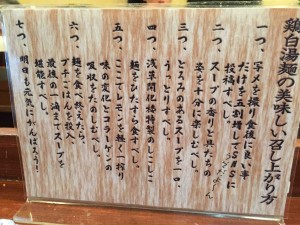 鶏白湯麺の美味しい召し上がり方
一つ、写メを撮り食後に良い事
だけを五割増してSNSに
投稿すべし。
二つ、スープの香りと具たちの
姿を十分に楽しむべし。
三つ、とろみのあるスープを一口、
うっとりすべし。
四つ、浅草開化楼特製のしこしこ
麺をひたすら食すべし。
五つ、ここでレモンを軽く一搾り
味の変化とコラーゲンの
吸収をたのしむべし。
六つ、麺を食べ終えたら、
プチごはんを投入
最後の一滴までスープを
堪能すべし。
七つ、明日も元気にがんばろう!